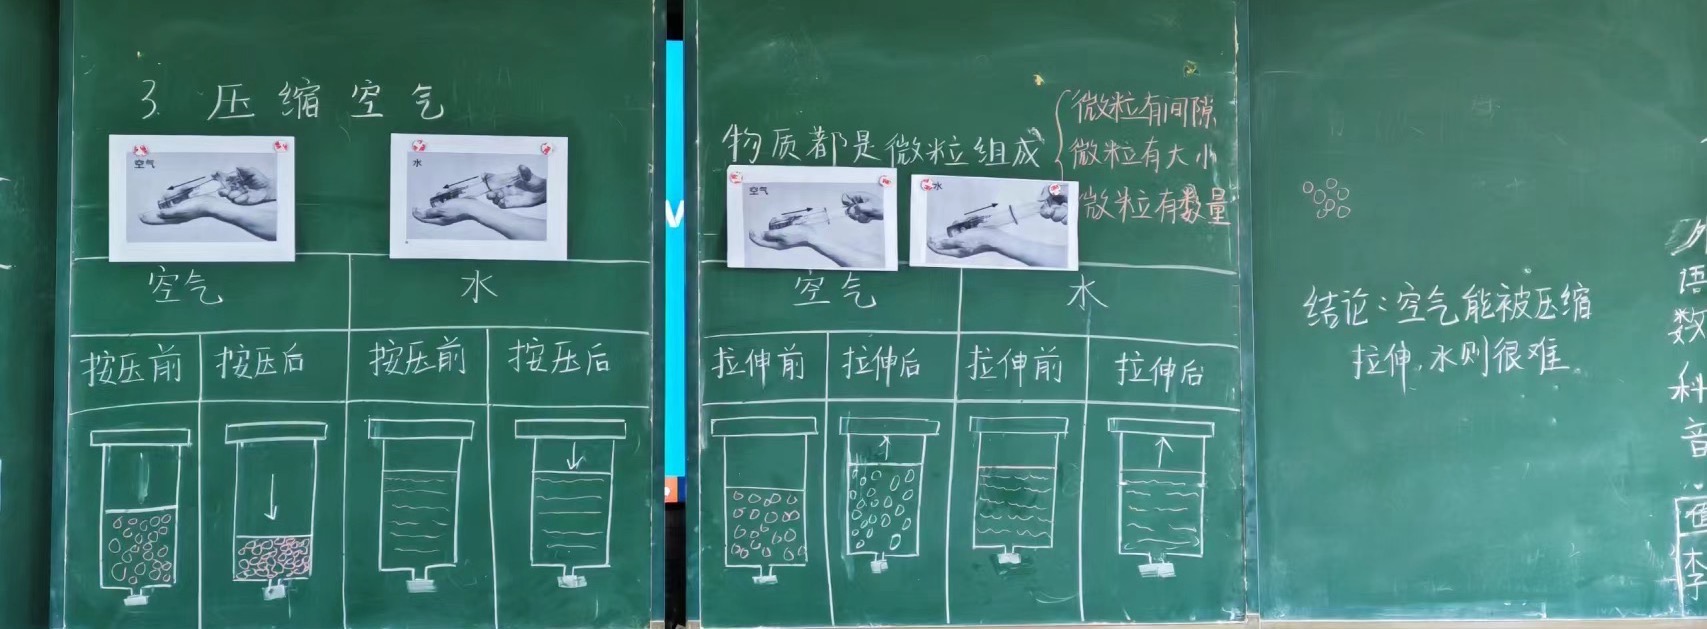 3. 压缩空气
空气
水
空气 水
按压前 按压后 按压前 按压后
物质都是微粒组成
微粒有间隙
微粒有大小
微粒有数量
空气
水
空气 水
拉伸前 拉伸后 拉伸前 拉伸后
结论:空气能被压缩
拉伸,水则很难
语
数
科
音
值
李